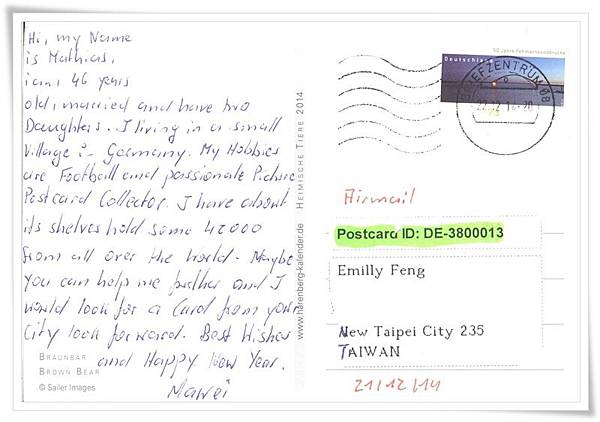 Hi, my Name
is Mathias,
i am 46 years
old, married and have two
Daughters. I living in a small
Village in Germany. My Hobbies
are Football and passionate Picture
Postcard Collector. I have about
its shelves hold some 42000
from all over the World. Maybe
you can help me further and I
would look for a Card from your
City look forward. Best Wishes
and Happy New Year.
Mawei
BRAUNBÄR
BROWN BEAR
© Sailer Images
www.harenberg-kalender.de HEIMISCHE TIERE 2014
50 Jahre Fehmarnsundbrücke
Deutschland
BRIEFZENTRUM 08
22.12.14
Airmail
Postcard ID: DE-3800013
Emilly Feng
New Taipei City 235
TAIWAN
21/12/14